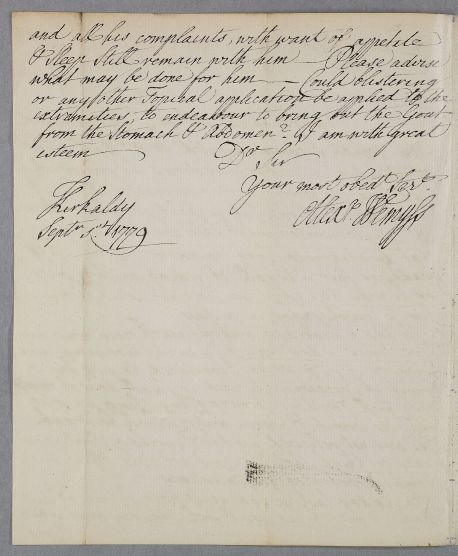 and all his complaints, with want of appetite
& Sleep Still remain with him — Please advise
what may be done for him — Could blistering
or any other Topical application be applied to the
extremities, to endeavour to bring out the Gout
from the Stomach & Abdomen? I am with great
esteem
Dr Sir
Your most obedt Sert
Alexr Wemyss
Kirkaldy
Septr 1st 1779